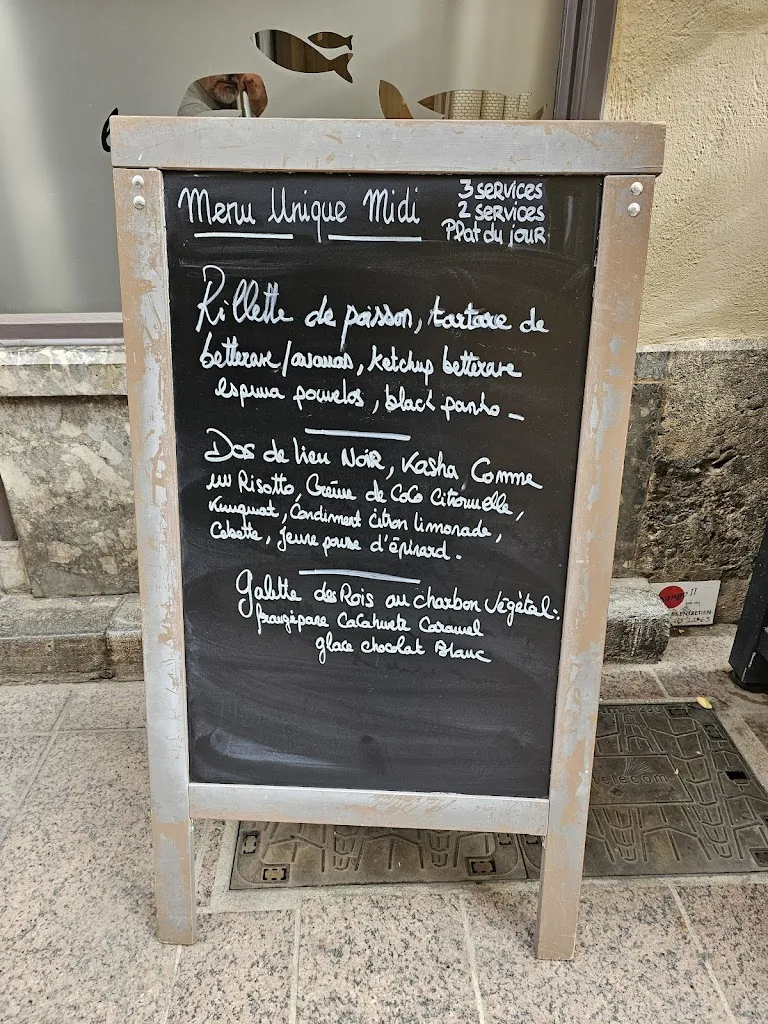 Menu Unique Midi
3 services
2 services
Plat du jour
Rillette de poisson, tartare de
betterave/ananas, ketchup betterave
espuma pomelos, black panko -
Dos de lieu Noir, Kasha Comme
un Risotto, Crème de Coco Citronnelle,
Kumquat, Condiment citron limonade,
Cebette, jeune pousse d'épinard.
Galette des Rois au charbon Végétal:
frangipane Cacahuete Caramel
glace chocolat Blanc
telecom